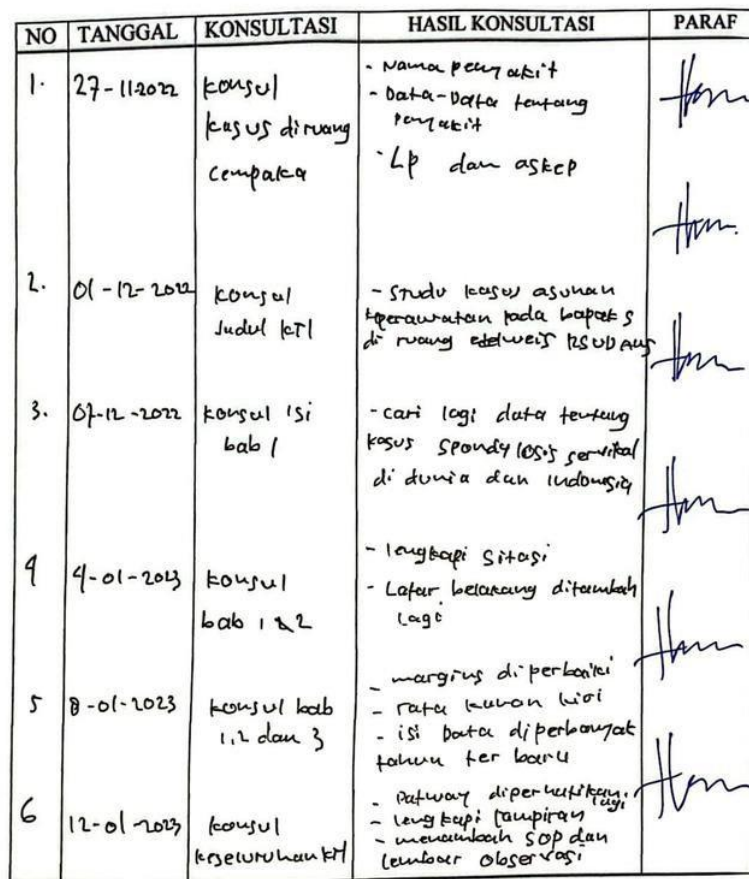 NO TANGGAL KONSULTASI HASIL KONSULTASI PARAF
1. 27-11-2022 konsul kasus diruang cempaka
- Nama penyakit
- Data-Data tentang penyakit
- Lp dan askep
2. 01-12-2022 konsul Judul KTI
- Studi kasus asuhan
keperawatan pada bapak S
di ruang edelweis RSUD
3. 07-12-2022 konsul isi bab 1
- cari lagi data tentang
kasus spondylosis servikal
di dunia dan indonesia
4 4-01-2023 konsul bab 1 & 2
- lengkapi sitasi
- Latar belakang ditambah
lagi
5 8-01-2023 konsul bab 1,2 dan 3
- margins diperbaiki
- rata kanan kiri
- isi Data diperbanyak
tahun ter baru
6 12-01-2023 konsul keseluruhan KTI
- Patway diperhatikan lagi
- lengkapi lampiran
- menambah SOP dan
lembar observasi